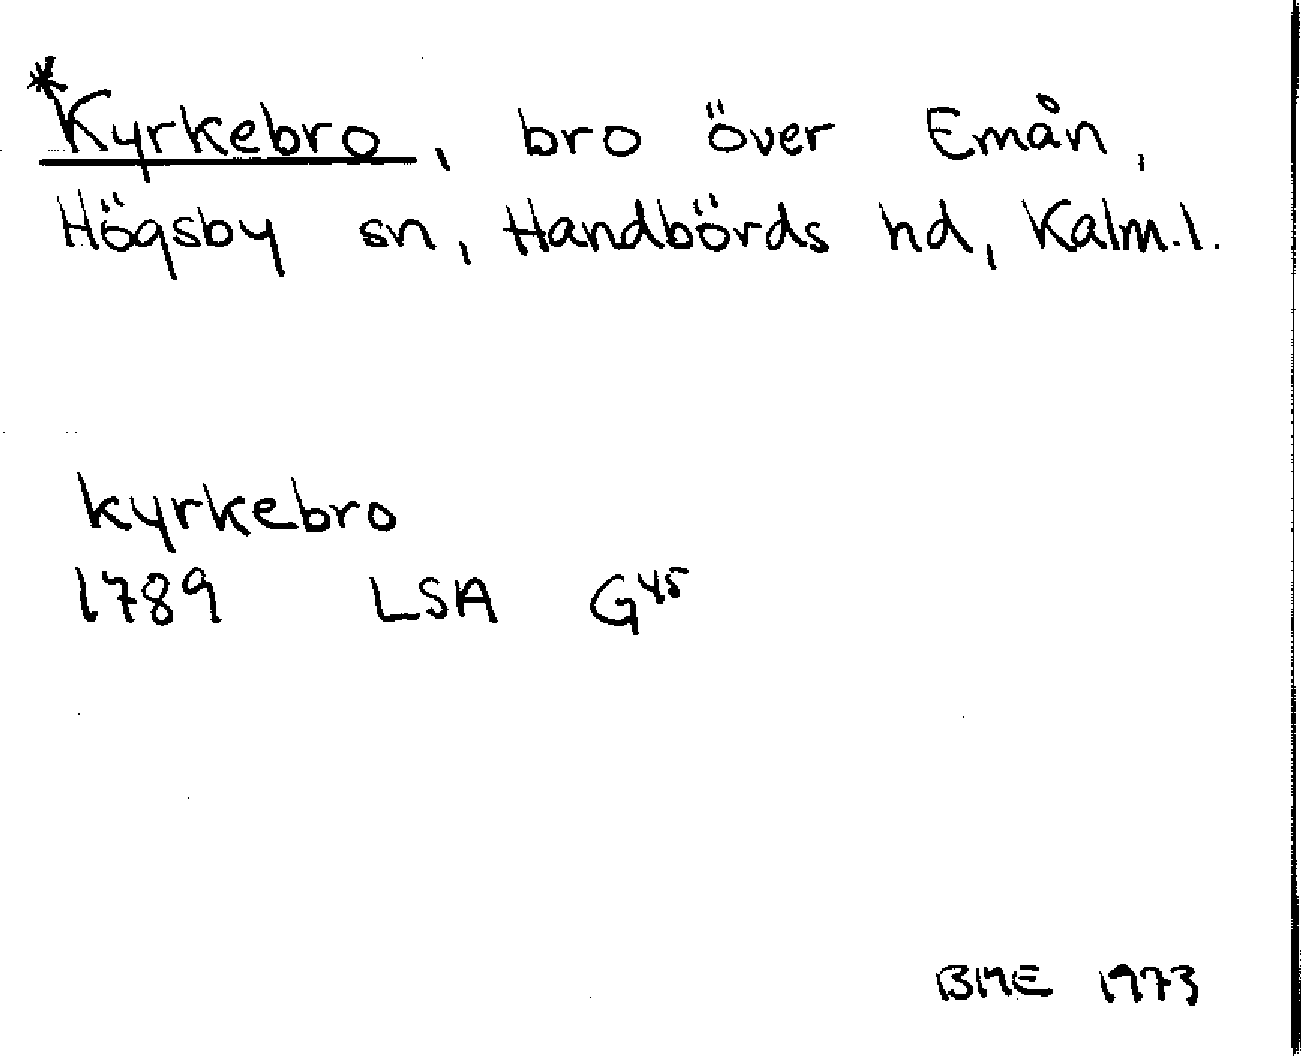 *Kyrkebro, bro över Emån,
Högsby sn, Handbörds hd, Kalm.l.
kyrkebro
1789 LSA G45
BME 1973